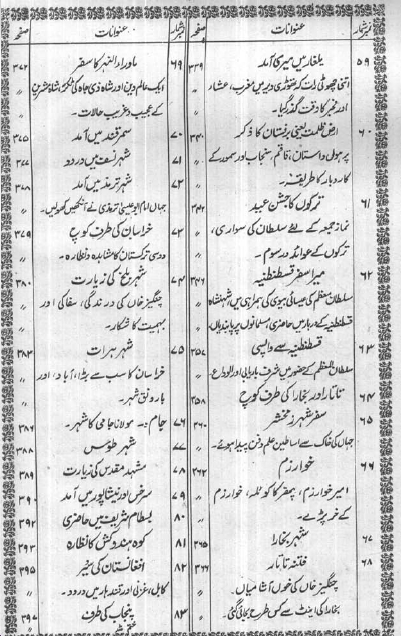 نمبر شمار عنوانات صفحہ
۵۹ یلغار میں میری آمد ۳۳۹
اتنی چھوٹی رات کہ تھوڑی دیر میں مغرب، عشاء
اور فجر کا وقت گذر گیا۔
۶۰ ارض ظلمت یعنی برفستان کا ذکر ۳۴۰
پرہول داستان، قاقم، سنجاب اور سمور کے
کاروبار کا طریقہ۔
۶۱ ترکوں کا جشن عید ۳۴۲
نماز جمعہ کے لئے سلطان کی سواری، 〃
ترکوں کے عوائد و رسوم۔ 〃
۶۲ میرا سفر قسطنطنیہ ۳۴۶
سلطان المعظم کی عیسائی بیوی کی ہمراہی میں شہنشاہ
قسطنطنیہ کے دربار میں حاضری، مسلمانوں پر پابندیاں۔ 〃
۶۳ قسطنطنیہ سے واپسی ۳۵۷
سلطان المعظم کے حضور میں شرف باریابی اور الوداع۔
۶۴ تاتار اور بخارا کی طرف کوچ ۳۵۸
۶۵ سفر شہر زمخشر ۳۶۰
جہاں کی خاک سے اساطین علم و فن پیدا ہوئے۔ 〃
۶۶ خوارزم ۳۶۲
امیر خوارزم، پتھر کا کوئلہ، خوارزم 〃
کے خربزے۔ 〃
۶۷ شہر بخارا ۳۶۵
۶۸ فتنہ تاتار ۳۶۶
چنگیز خاں کی خوں آشامیاں۔
بخارا کی اینٹ سے کس طرح بجائی گئی۔
نمبر شمار عنوانات صفحہ
۶۹ ماوراء النہر کا سفر ۳۷۲
ایک عالم دین اور شاہ ذی جاہ کی ٹکر، شاہ طرمشیرین 〃
کے عجیب و غریب حالات۔
۷۰ سمرقند میں آمد ۳۷۵
۷۱ شہر نسف میں ورود ۳۷۷
۷۲ شہر ترمذ میں آمد ۳۷۸
جہاں امام ابوعیسیٰ ترمذی نے آنکھیں کھولیں۔ 〃
۷۳ خراسان کی طرف کوچ ۳۷۹
روسی ترکستان کا مشاہدہ و نظارہ۔ 〃
۷۴ شہر بلخ کی زیارت ۳۸۰
چنگیز خاں کی درندگی، سفاکی اور 〃
بہیمیت کا شکار۔ 〃
۷۵ شہر ہرات ۳۸۳
خراسان کا سب سے بڑا، آباد، اور 〃
بارونق شہر۔
۷۶ جام۔ مولانا جامی کا شہر۔ ۳۸۶
۷۷ شہر طوس ۳۸۸
۷۸ مشہد مقدس کی زیارت ۳۸۹
۷۹ سرخس اور نیشاپور میں آمد ۳۹۰
۸۰ بسطام شریف میں حاضری ۳۹۲
۸۱ کوہ ہندوکش کا نظارہ ۳۹۳
۸۲ افغانستان کی سیر ۳۹۵
کابل، غزنی اور قندہار میں ورود۔ 〃
۸۳ پنجاب کی طرف ۳۹۷